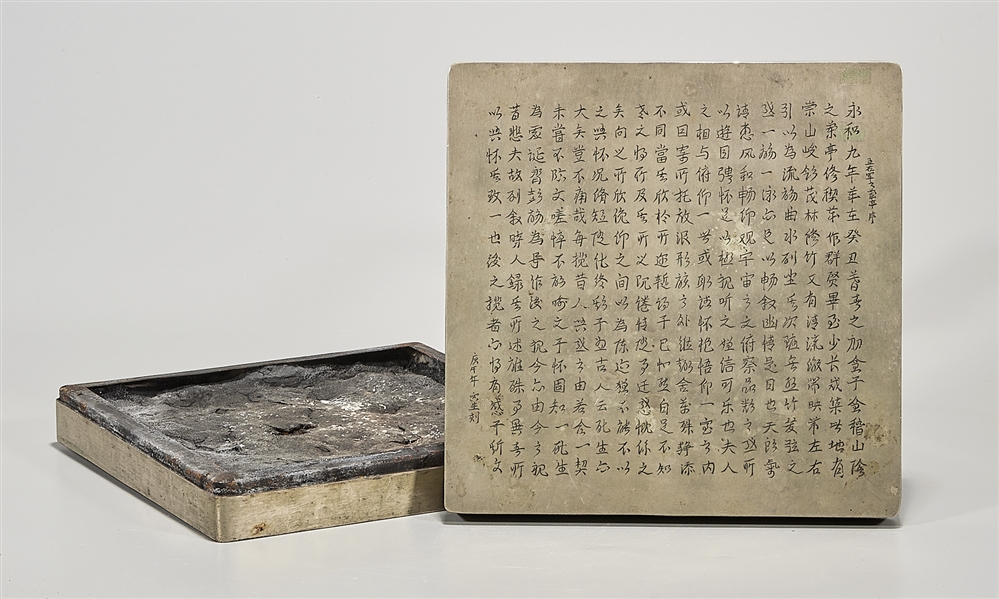 永和九年歲在癸丑暮春之初會于會稽山陰
之蘭亭修禊事也群賢畢至少長咸集此地有
崇山峻領茂林修竹又有清流激湍映帶左右
引以為流觴曲水列坐其次雖無絲竹管弦之
盛一觴一詠亦足以暢敘幽情是日也天朗氣
清惠風和暢仰觀宇宙之大俯察品類之盛所
以遊目騁懷足以極視聽之娛信可樂也夫人
之相与俯仰一世或取諸懷抱悟言一室之內
或因寄所托放浪形骸之外雖趣舍萬殊靜躁
不同當其欣於所遇暫得于己快然自足不知
老之將至及其所之既倦情隨事遷感慨係之
矣向之所欣俛仰之間以為陳迹猶不能不以
之興懷況脩短隨化終期于盡古人云死生亦
大矣豈不痛哉每攬昔人興感之由若合一契
未嘗不臨文嗟悼不能喻之于懷固知一死生
為虛誕齊彭殤為妄作後之視今亦由今之視
昔悲夫故列敘時人錄其所述雖殊事異世所
以興懷其致一也後之攬者亦將有感于斯文
庚午年